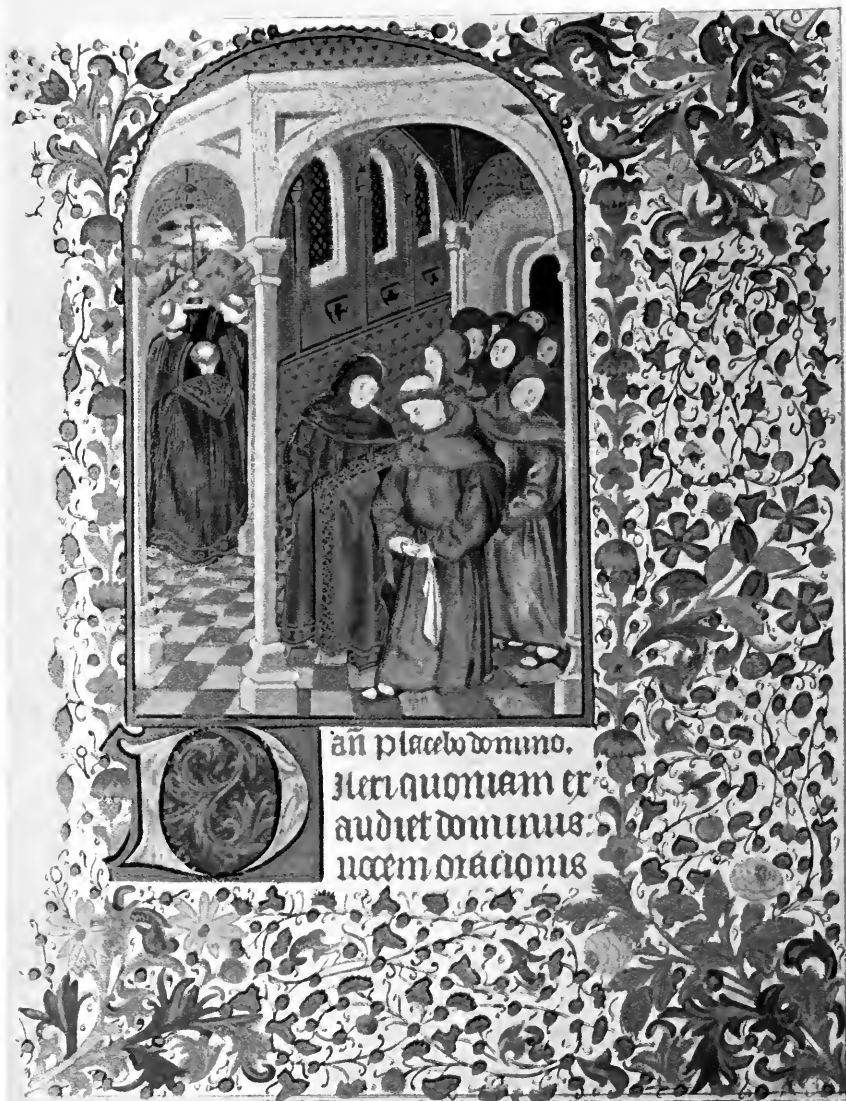 añ placebo domino.
Dilexi quoniam ex
audiet dominus.
uocem oracionis